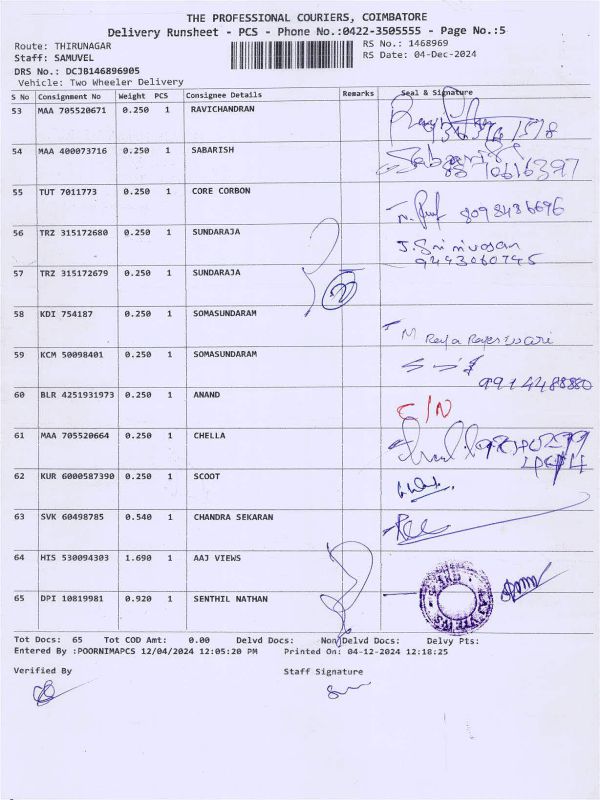 THE PROFESSIONAL COURIERS, COIMBATORE
Delivery Runsheet - PCS - Phone No.:0422-3505555 - Page No.:5
Route: THIRUNAGAR RS No.: 1468969
Staff: SAMUVEL RS Date: 04-Dec-2024
DRS No.: DCJB146896905
Vehicle: Two Wheeler Delivery
S No Consignment No Weight PCS Consignee Details Remarks Seal & Signature
53 MAA 705520671 0.250 1 RAVICHANDRAN
54 MAA 400073716 0.250 1 SABARISH
55 TUT 7011773 0.250 1 CORE CORBON 8098486696
56 TRZ 315172680 0.250 1 SUNDARAJA J. Srinivasan
9443060745
57 TRZ 315172679 0.250 1 SUNDARAJA
58 KDI 754187 0.250 1 SOMASUNDARAM
59 KCM 50098401 0.250 1 SOMASUNDARAM
9914488880
60 BLR 4251931973 0.250 1 ANAND
61 MAA 705520664 0.250 1 CHELLA
62 KUR 6000587390 0.250 1 SCOOT
63 SVK 60498785 0.540 1 CHANDRA SEKARAN
64 HIS 530094303 1.690 1 AAJ VIEWS
65 DPI 10819981 0.920 1 SENTHIL NATHAN
Tot Docs: 65 Tot COD Amt: 0.00 Delvd Docs: Non Delvd Docs: Delvy Pts:
Entered By :POORNIMAPCS 12/04/2024 12:05:20 PM Printed On: 04-12-2024 12:18:25
Verified By Staff Signature